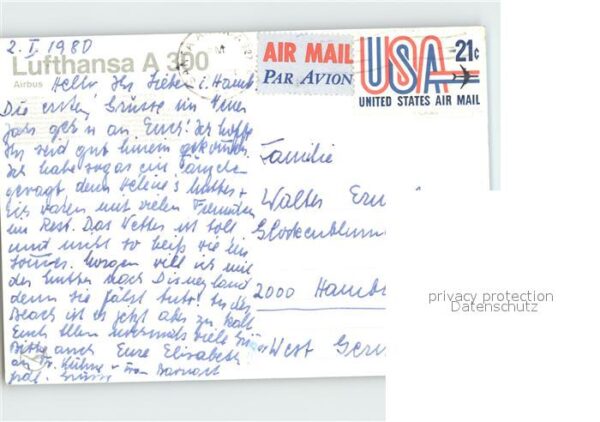 2.I.1980
Lufthansa A 300
Airbus
AIR MAIL
PAR AVION
USA 21c
UNITED STATES AIR MAIL
Hello Ihr Lieben i. Hamb
Die ersten Grüsse im Neuen
Jahr geh'n an Euch! Ich hoffe
Ihr seid gut hinein gekommen
Ich habe sogar ein Tänzchen
gewagt, denn Helene's Mutter +
ich waren mit vielen Freunden
im Rest. Das Wetter ist toll
und nicht so heiß wie im
Sommer. Morgen will ich mit
der Mutter nach Disneyland
denn sie fährt
Beach ist es jetzt aber zu kalt
Euch allen nochmals viele Grüsse
Bitte auch Eure Elisabeth
an Fr. Kühne + Frau
Grüsse
Familie
Walter
Glockenblum
2000 Hamb
West Ger
privacy protection
Datenschutz